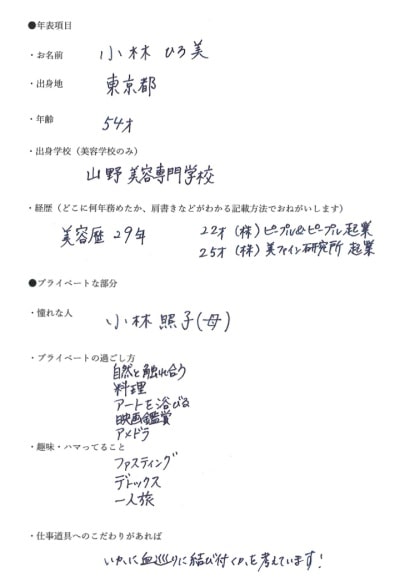 ●年表項目
・お名前 小林 ひろ美
・出身地 東京都
・年齢 54才
・出身学校（美容学校のみ）
山野美容専門学校
・経歴（どこに何年務めたか、肩書きなどがわかる記載方法でおねがいします）
美容歴29年 22才（株）ピープル&ピープル起業
25才（株）美ファイン研究所 起業
●プライベートな部分
・憧れな人 小林 照子(母)
・プライベートの過ごし方
自然と触れ合う
料理
アートを浴びる
映画鑑賞
アメドラ
・趣味・ハマってること
ファスティング
デトックス
一人旅
・仕事道具へのこだわりがあれば
いかに血巡りに結び付くか、を考えています！